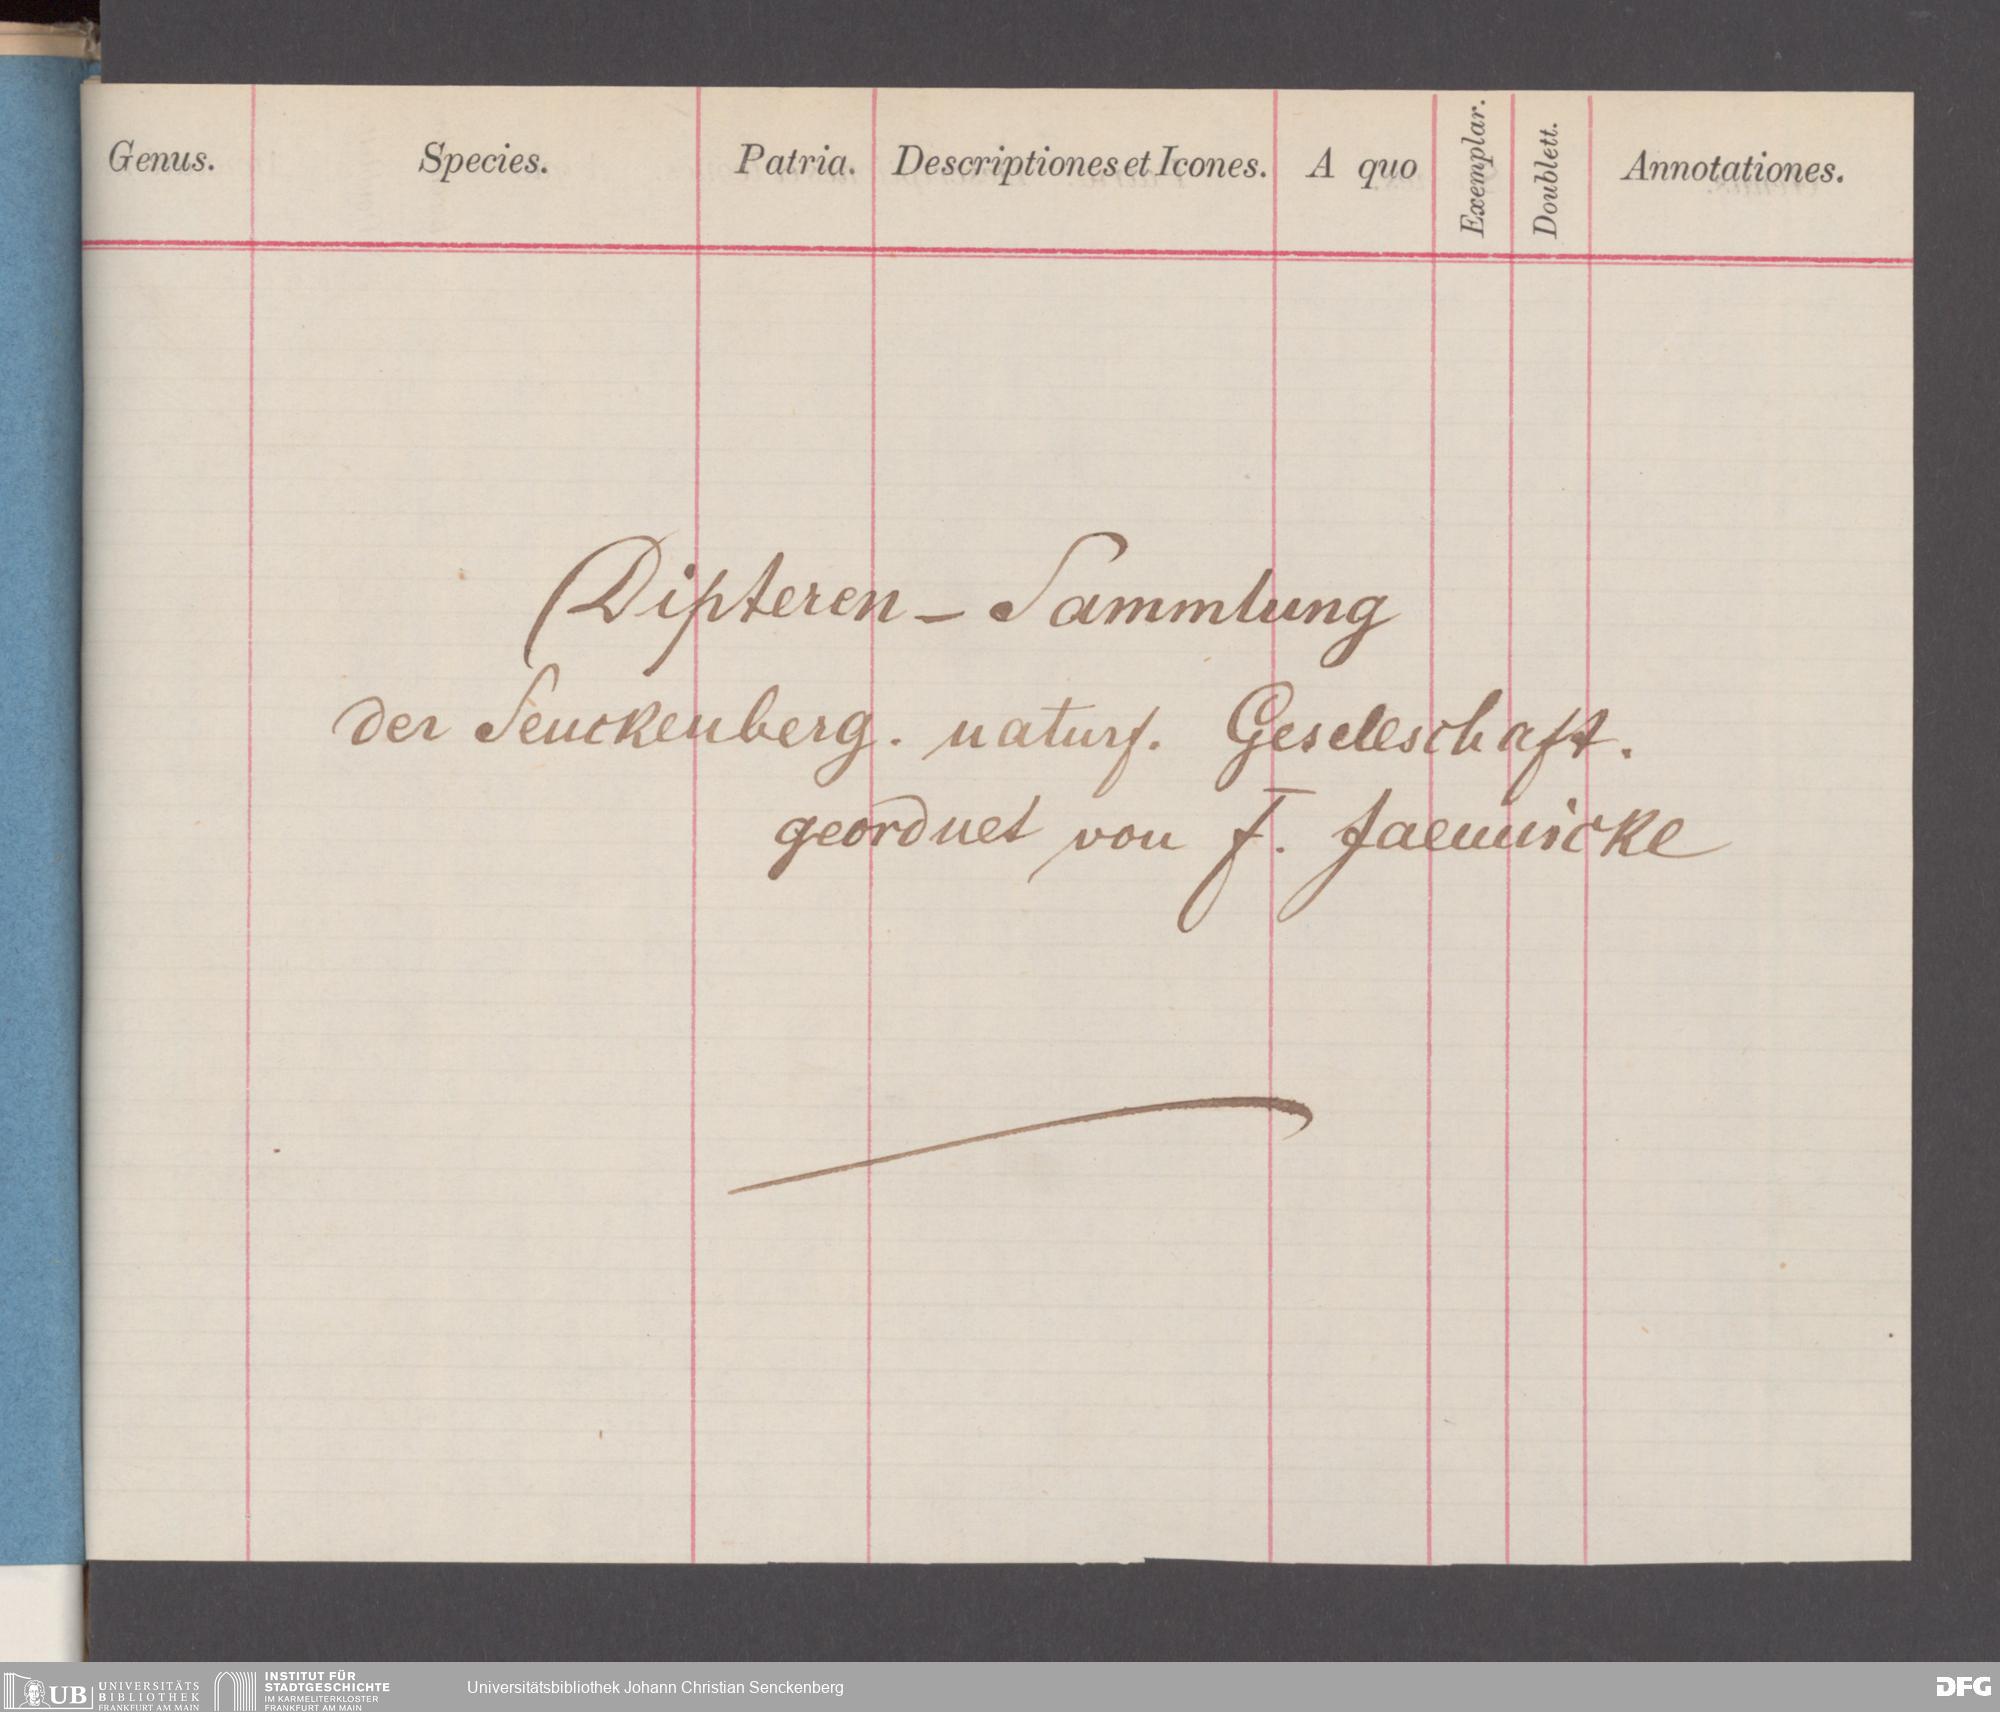 Genus. Species. Patria. Descriptiones et Icones. A quo Exemplar. Doublett. Annotationes.
Dipteren-Sammlung
der Senckenberg. naturf. Gesellschaft.
geordnet von F. Jaennicke
UB UNIVERSITÄTS
BIBLIOTHEK
FRANKFURT AM MAIN
INSTITUT FÜR
STADTGESCHICHTE
IM KARMELITERKLOSTER
FRANKFURT AM MAIN
Universitätsbibliothek Johann Christian Senckenberg
DFG